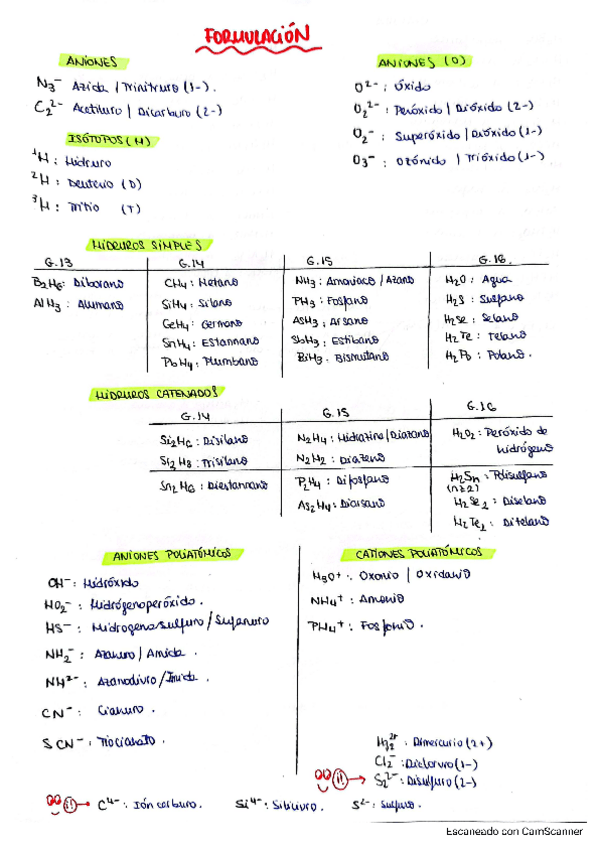 FORMULACIÓN
ANIONES
N3⁻ Azida / Trinitruro (1-).
C2²⁻ Acetiluro / Dicarburo (2-)
ANIONES (O)
O²⁻ : Óxido
O2²⁻ : Peróxido / Dióxido (2-)
O2⁻ : Superóxido / Dióxido (1-)
O3⁻ : Ozónido / Trióxido (1-)
ISÓTOPOS (H)
¹H : Hidruro
²H : Deuterio (D)
³H : Tritio (T)
HIDRUROS SIMPLES
G.13 G.14 G.15 G.16.
B2H6: Diborano CH4 : Metano NH3 : Amoniaco / Azano H2O : Agua
AlH3 : Alumano SiH4 : Silano PH3 : Fosfano H2S : Sulfano
GeH4 : Germano AsH3 : Arsano H2Se : Selano
SnH4 : Estannano SbH3 : Estibano H2Te : Telano
PbH4 : Plumbano BiH3 : Bismutano H2Po : Polano.
HIDRUROS CATENADOS
G.14 G.15 G.16
Si2H6 : Disilano N2H4 : Hidrazina / Diazano H2O2 : Peróxido de
hidrógeno
Si3H8 : Trisilano N2H2 : Diazeno
Sn2H6 : Diestannano P2H4 : Difosfano H2Sn : Polisulfano
(n≥2)
As2H4 : Diarsano H2Se2 : Diselano
H2Te2 : Ditelano
ANIONES POLIATÓMICOS
OH⁻ : Hidróxido
HO2⁻ : Hidrógenoperóxido.
HS⁻ : Hidrogenosulfuro / Sulfanuro
NH2⁻ : Azanuro / Amida.
NH²⁻ : Azanodiuro / Imida.
CN⁻ : Cianuro.
SCN⁻ : Tiocianato.
CATIONES POLIATÓMICOS
H3O⁺ : Oxonio / Oxidanio
NH4⁺ : Amonio
PH4⁺ : Fosfonio.
Hg2²⁺ : Dimercurio (2+)
Cl2⁻ : Dicloruro (1-)
!! → S2²⁻ : Disulfuro (2-)
!! → C⁴⁻ : Ión carburo. Si⁴⁻ : Siliciuro. S²⁻ : Sulfuro.
Escaneado con CamScanner